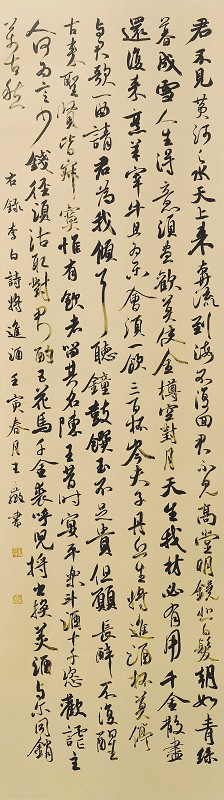 君不見黃河之水天上來奔流到海不復回君不見高堂明鏡悲白髮朝如青絲
暮成雪人生得意須盡歡莫使金樽空對月天生我材必有用千金散盡
還復來烹羊宰牛且為樂會須一飲三百杯岑夫子丹丘生將進酒杯莫停
與君歌一曲請君為我傾耳聽鐘鼓饌玉不足貴但願長醉不復醒
古來聖賢皆寂寞惟有飲者留其名陳王昔時宴平樂斗酒十千恣歡謔主
人何為言少錢徑須沽取對君酌五花馬千金裘呼兒將出換美酒與爾同銷
萬古愁
右錄李白詩將進酒壬寅春月王書